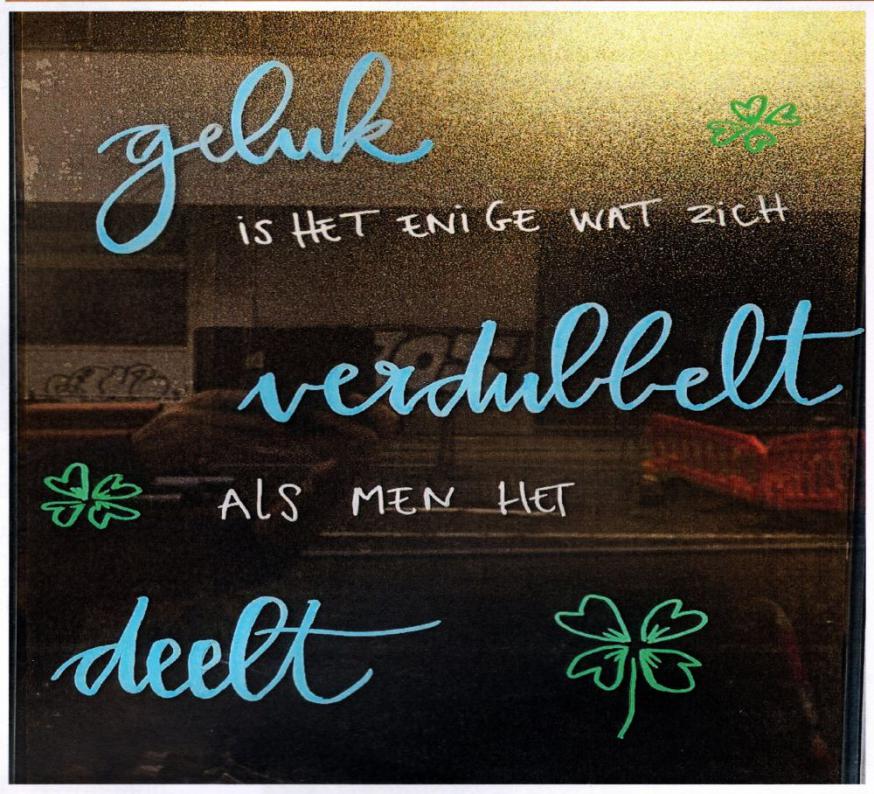 geluk
iS HET ENiGE WAT ZiCH
verdubbelt
ALS MEN HET
deelt